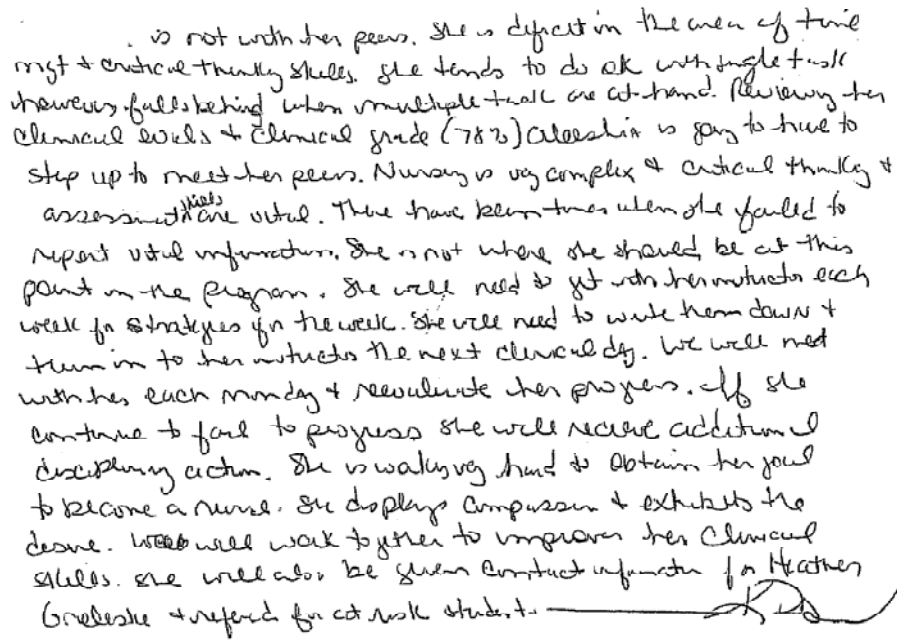 is not with her peers. She is deficit in the area of time
mgt & critical thinking skills. She tends to do ok with single task
however falls behind when multiple task are at hand. Reviewing her
clinical evals & clinical grade (78%) Aleeshia is going to have to
step up to meet her peers. Nursing is vey complex & critical thinking &
assessment skills are vital. There have been times when she failed to
report vital information. She is not where she should be at this
point in the program. She will need to get with her instructor each
week for strategies for the week. She will need to write them down &
turn in to her instructor the next clinical day. We will meet
with her each monday & reevaluate her progress. If she
continue to fail to progress she will receive additional
disciplinary action. She is working very hard to obtain her goal
to become a nurse. She displays compassion & exhibits the
desire. will work together to improve her clinical
skills. She will also be given contact information for Heather
& referred for at risk student.